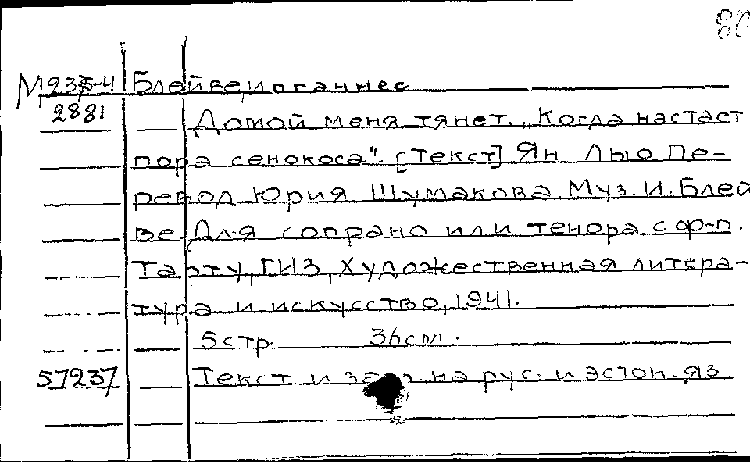 80
М235-4 Блейве, иоганнес
2881
Домой меня тянет. „Когда настает
пора сенокоса". [Текст] Ян Лыо. Пе-
ревод Юрия Шумакова. Муз. И. Блей
ве. Для сопрано или тенора с ф-п.
Тарту, ГИЗ, Художественная литера-
тура и искусство, 1941.
5 стр. 36 см.
57237 Текст и на рус. и эстон. яз